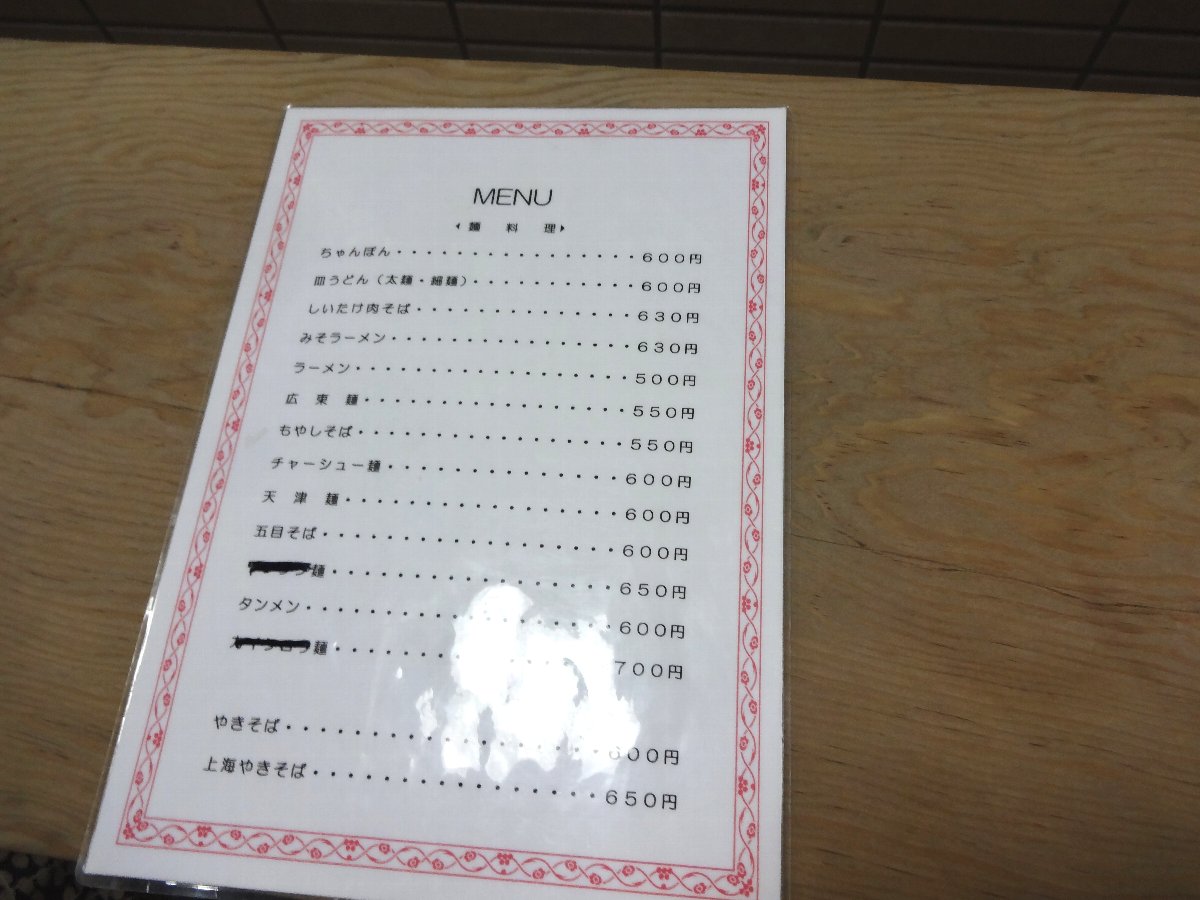 MENU
<麺 料 理>
ちゃんぽん・・・・・・・・・・・・・・・・600円
皿うどん(太麺・細麺)・・・・・・・・・・・600円
しいたけ肉そば・・・・・・・・・・・・・・630円
みそラーメン・・・・・・・・・・・・・・・・630円
ラーメン・・・・・・・・・・・・・・・・・・500円
広 東 麺・・・・・・・・・・・・・・・・・550円
もやしそば・・・・・・・・・・・・・・・・・550円
チャーシュー麺・・・・・・・・・・・・・・・600円
天 津 麺・・・・・・・・・・・・・・・・・600円
五目そば・・・・・・・・・・・・・・・・・・・600円
麺・・・・・・・・・・・・・・・・・・650円
タンメン・・・・・・・・・・・・・・・・・・600円
麺・・・・・・・・・・・・・・・・・700円
やきそば・・・・・・・・・・・・・・・・・・600円
上海やきそば・・・・・・・・・・・・・・・・650円